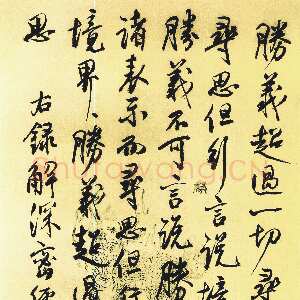 勝義超過一切尋
尋思但行言說境
勝義不可言說勝
諸表示而尋思但行
境界勝義超過
思
右錄解深密經
shufawang.CN